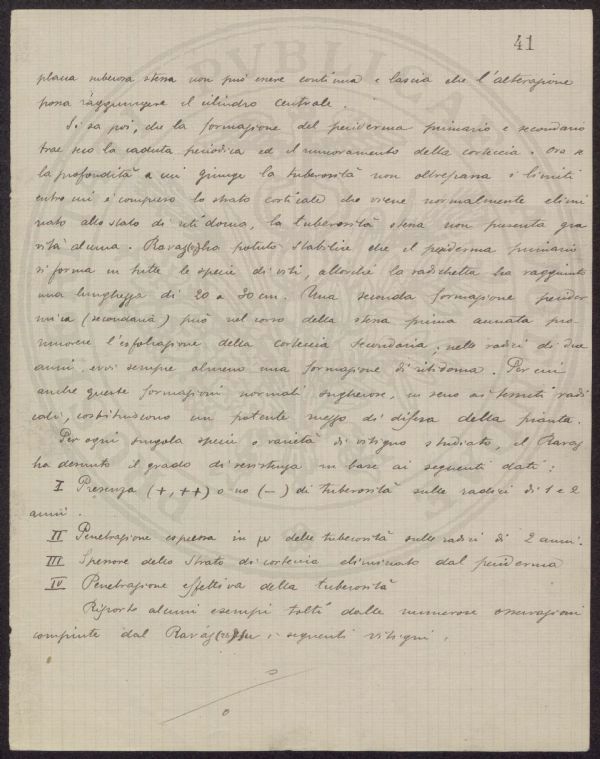 41
placca tuberosa stessa non può essere continua e lascia che l'alterazione
possa raggiungere il cilindro centrale.
Si sa poi, che la formazione del periderma primario e secondario
trae seco la caduta periodica ed il rinnovamento della corteccia. Ora se
la profondità a cui giunge la tuberosità non oltrepassa i limiti
entro cui è compreso lo strato corticale che viene normalmente elimi
nato allo stato di ritidoma, la tuberosità stessa non presenta gra
vità alcuna. Ravaz ha potuto stabilire che il periderma primario
si forma in tutte le specie di viti, allorché la radichetta ha raggiunto
una lunghezza di 20 a 30 cm. Una seconda formazione perider
mica (secondaria) può nel corso della stessa prima annata pro-
muovere l'esfoliazione della corteccia secondaria; nelle radici di due
anni, evvi sempre almeno una formazione di ritidoma. Per cui
anche queste formazioni normali sugherose, in seno ai tessuti radi
cali, costituiscono un potente mezzo di difesa della pianta.
Per ogni singola specie o varietà di vitigno studiato, il Ravaz
ha desunto il grado di resistenza in base ai seguenti dati:
I Presenza (+, ++) o no (-) di tuberosità sulle radici di 1 e 2
anni.
II Penetrazione espressa in μ delle tuberosità sulle radici di 2 anni.
III Spessore dello strato di corteccia eliminato dal periderma
IV Penetrazione effettiva della tuberosità
Riporto alcuni esempi tolti dalle numerose osservazioni
compiute dal Ravaz su i seguenti vitigni.
PVBLICA